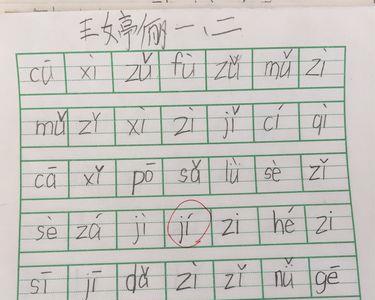 王女婷俪一、二
cū xì zǔ fù zǔ mǔ zì
mǔ zǐ xì zì jǐ cí qì
cā xǐ pō sǎ lǜ sè zǐ
sè zá jì jí zi hé zi
sī jī dǎ zì zǐ nǚ gē